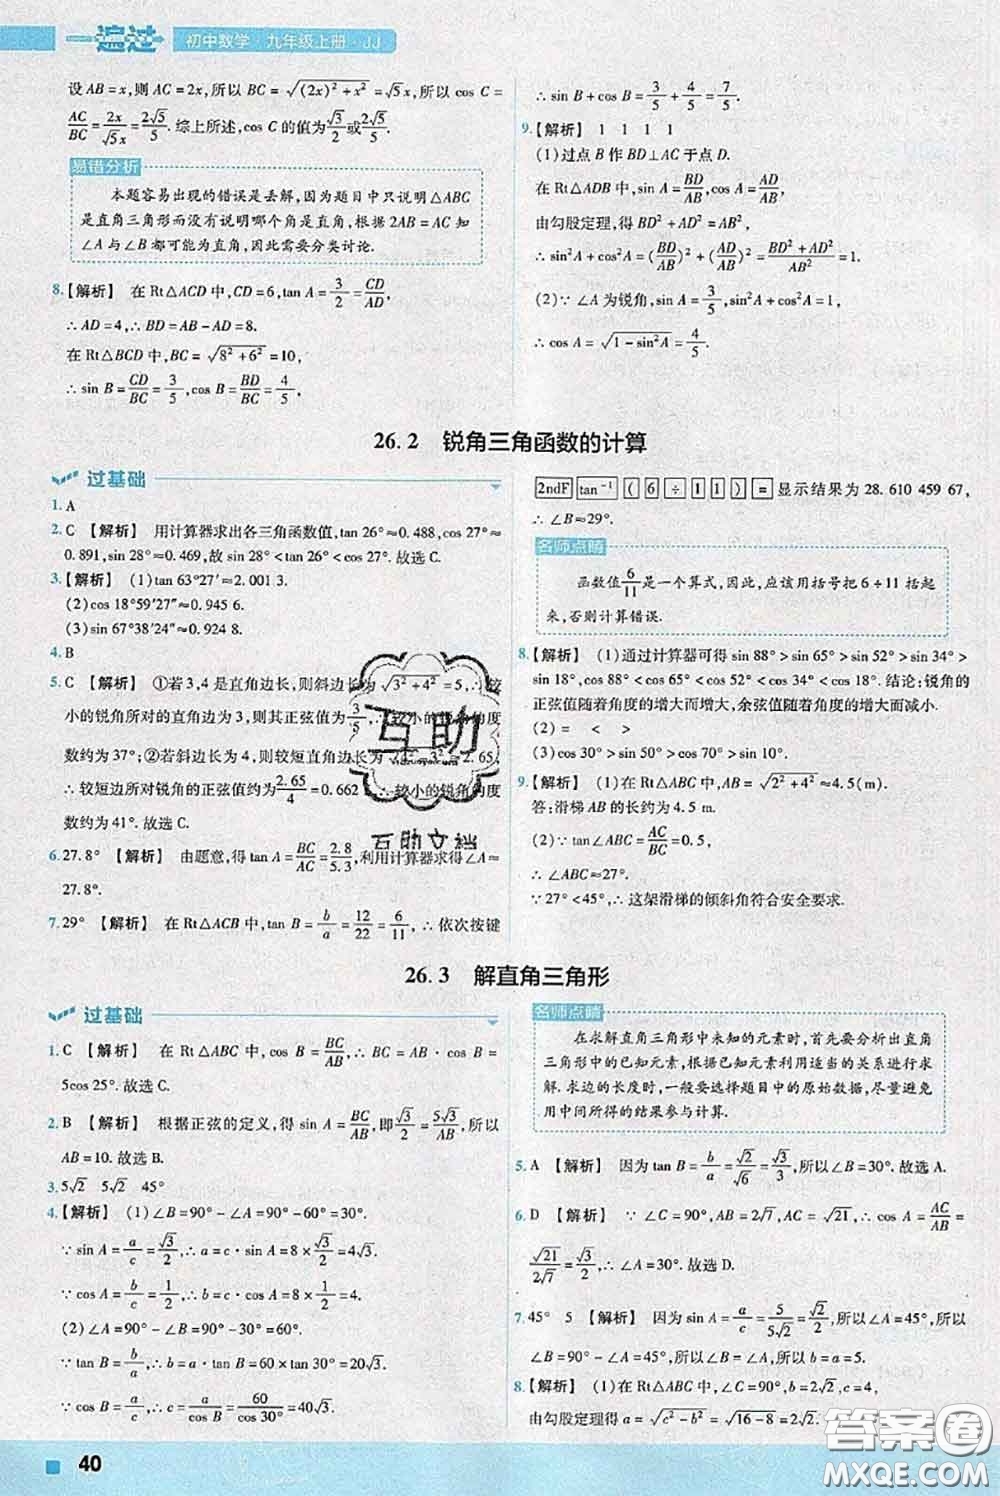 一遍过 初中数学·九年级上册·JJ
设AB=x,则AC=2x,所以BC=√((2x)²+x²)=√5x,所以cos C=
AC/BC=2x/√5x=2√5/5.综上所述,cos C的值为√3/2或2√5/5.
易错分析
本题容易出现的错误是丢解,因为题目中只说明△ABC
是直角三角形而没有说明哪个角是直角,根据2AB=AC知
∠A与∠B都可能为直角,因此需要分类讨论.
8.【解析】 在Rt△ACD中,CD=6,tan A=3/2=CD/AD,
∴AD=4,∴BD=AB-AD=8.
在Rt△BCD中,BC=√(8²+6²)=10,
∴sin B=CD/BC=3/5,cos B=BD/BC=4/5,
∴sin B+cos B=3/5+4/5=7/5.
9.【解析】 1 1 1 1
(1)过点B作BD⊥AC于点D.
在Rt△ADB中,sin A=BD/AB,cos A=AD/AB,
由勾股定理,得BD²+AD²=AB²,
∴sin²A+cos²A=(BD/AB)²+(AD/AB)²=(BD²+AD²)/AB²=1.
(2)∵∠A为锐角,sin A=3/5,sin²A+cos²A=1,
∴cos A=√(1-sin²A)=4/5.
26.2 锐角三角函数的计算
过基础
1.A
2.C 【解析】 用计算器求出各三角函数值,tan 26°≈0.488,cos 27°≈
0.891,sin 28°≈0.469,故sin 28°<tan 26°<cos 27°.故选C.
3.【解析】 (1)tan 63°27′≈2.001 3.
(2)cos 18°59′27″≈0.945 6.
(3)sin 67°38′24″≈0.924 8.
4.B
5.C 【解析】 ①若3,4是直角边长,则斜边长为√(3²+4²)=5,∴较
小的锐角所对的直角边为3,则其正弦值为3/5,∴较小的锐角的度
数约为37°;②若斜边长为4,则较短直角边长为√(4²-3²)≈2.65,
∴较短边所对锐角的正弦值约为2.65/4=0.662 ∴较小的锐角的度
数约为41°.故选C.
6.27.8° 【解析】 由题意,得tan A=BC/AC=2.8/5.3,利用计算器求得∠A≈
27.8°.
7.29° 【解析】 在Rt△ACB中,tan B=b/a=12/22=6/11,∴依次按键
2ndF tan⁻¹ ( 6 ÷ 1 1 ) = 显示结果为28.610 459 67,
∴∠B≈29°.
名师点睛
函数值6/11是一个算式,因此,应该用括号把6÷11括起
来,否则计算错误.
8.【解析】 (1)通过计算器可得sin 88°>sin 65°>sin 52°>sin 34°>
sin 18°,cos 88°<cos 65°<cos 52°<cos 34°<cos 18°.结论:锐角的
正弦值随着角度的增大而增大,余弦值随着角度的增大而减小.
(2)= < >
(3)cos 30°>sin 50°>cos 70°>sin 10°.
9.【解析】 (1)在Rt△ABC中,AB=√(2²+4²)≈4.5(m).
答:滑梯AB的长约为4.5 m.
(2)∵tan∠ABC=AC/BC=0.5,
∴∠ABC≈27°.
∵27°<45°,∴这架滑梯的倾斜角符合安全要求.
互助
互助文档
26.3 解直角三角形
过基础
1.C 【解析】 在Rt△ABC中,∵cos B=BC/AB,∴BC=AB·cos B=
5cos 25°.故选C.
2.B 【解析】 根据正弦的定义,得sin A=BC/AB,即√3/2=5√3/AB,所以
AB=10.故选B.
3.5√2 5√2 45°
4.【解析】 (1)∠B=90°-∠A=90°-60°=30°.
∵sin A=a/c=√3/2,∴a=c·sin A=8×√3/2=4√3.
∵cos A=b/c=1/2,∴b=c·cos A=8×1/2=4.
(2)∠A=90°-∠B=90°-30°=60°.
∵tan B=b/a,∴b=a·tan B=60×tan 30°=20√3.
∵cos B=a/c,∴c=a/cos B=60/cos 30°=40√3.
名师点睛
在求解直角三角形中未知的元素时,首先要分析出直角
三角形中的已知元素,根据已知元素利用适当的关系进行求
解.求边的长度时,一般要选择题目中的原始数据,尽量避免
用中间所得的结果参与计算.
5.A 【解析】 因为tan B=b/a=√2/√6=√3/3,所以∠B=30°.故选A.
6.D 【解析】 ∵∠C=90°,AB=2√7,AC=√21,∴cos A=AC/AB=
√21/2√7=√3/2,∴∠A=30°.故选D.
7.45° 5 【解析】 因为sin A=a/c=5/5√2=√2/2,所以∠A=45°,所以
∠B=90°-∠A=45°,所以∠A=∠B,所以b=a=5.
8.【解析】 (1)在Rt△ABC中,∠C=90°,b=2√2,c=4,
由勾股定理得a=√(c²-b²)=√(16-8)=2√2
40
答案圈
MXQE.COM